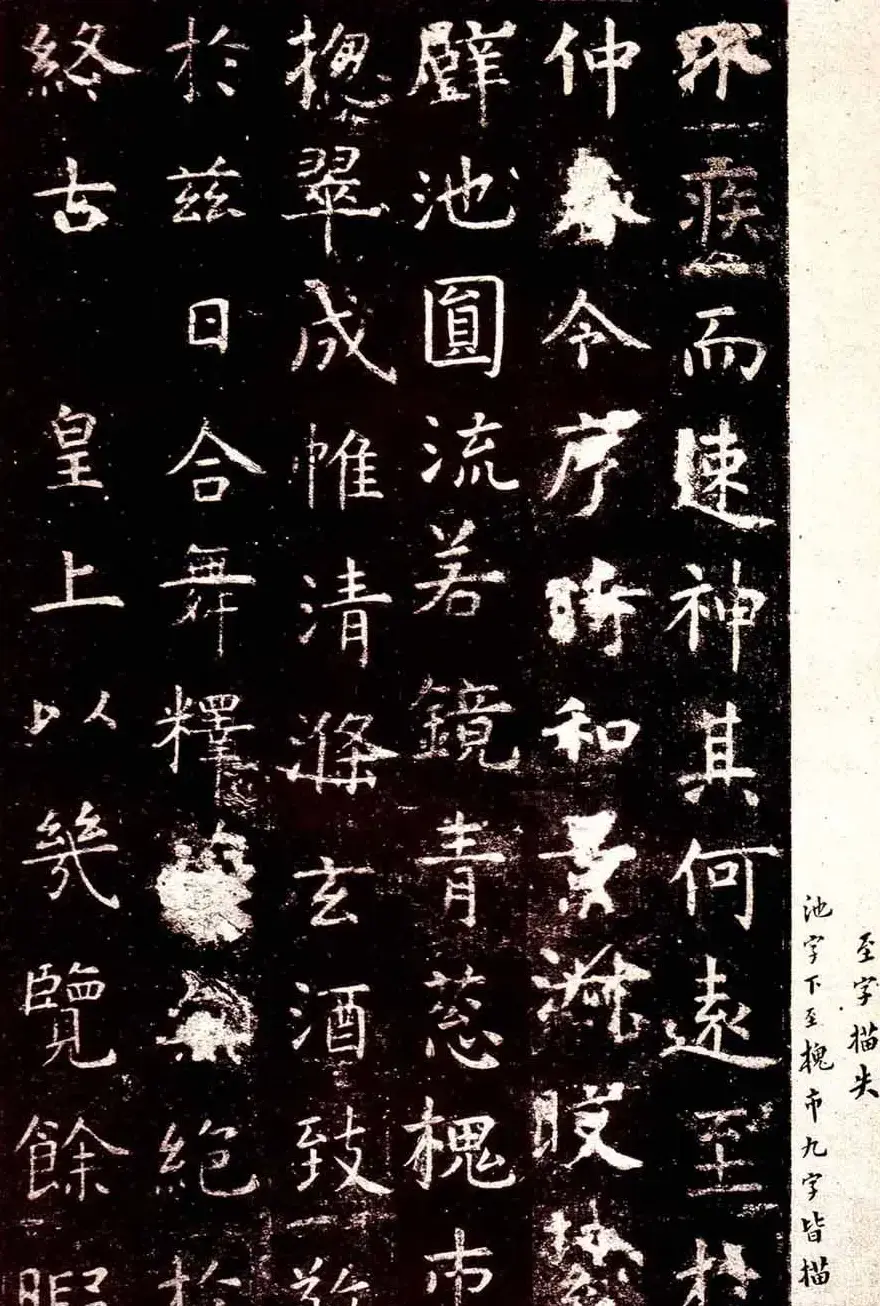 至字描失
池字下至槐市九字皆描
不疾而速神其何遠至於
仲春令序時和景淑
璧池圓流若鏡青葱槐市
揔翠成帷清滌玄酒致敬
於兹日合舞釋菜無絶於
終古 皇上以幾覽餘暇